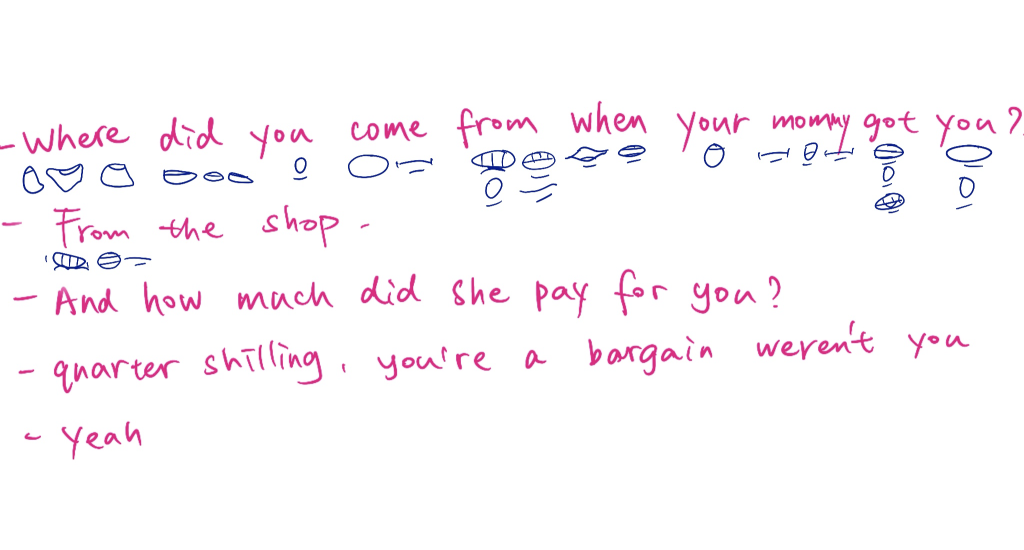 - Where did you come from when your mommy got you?
- From the shop.
- And how much did she pay for you?
- quarter shilling, you're a bargain weren't you
- Yeah